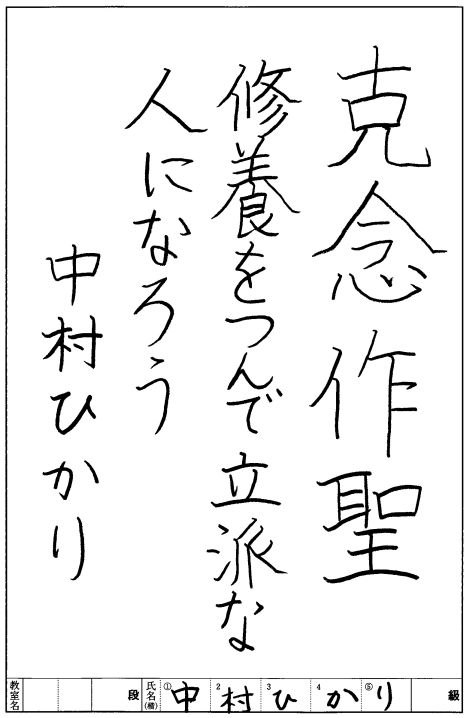 克念作聖
修養をつんで立派な
人になろう
中村ひかり
教室名 段 氏名(楷) ①中 2村 3ひ 4か ⑤り 級